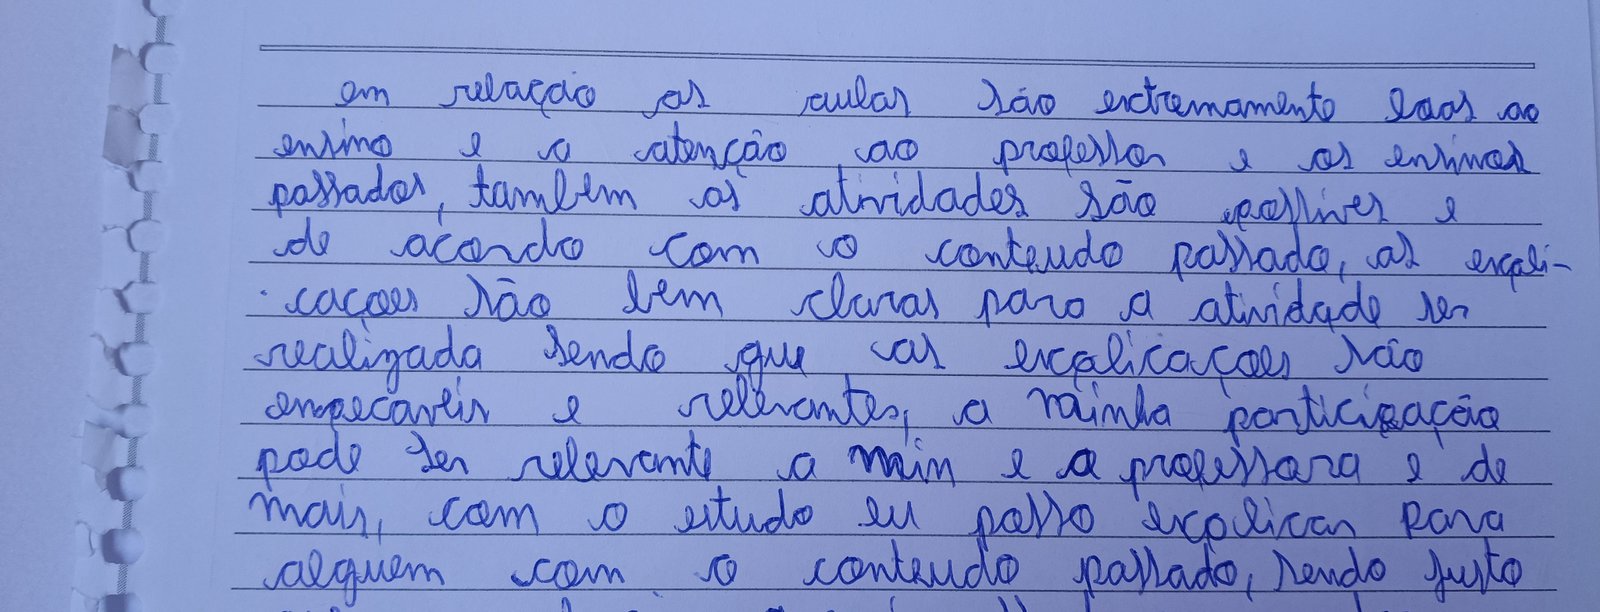 em relação as aulas são extremamente boas ao
ensino e a atenção ao professor e os ensinos
passados, tambem as atividades são possives e
de acordo com o conteudo passado, as expli-
caçoes são bem claras para a atividade ser
realizada sendo que as explicaçoes são
empecaveis e relevantes, a minha participação
pode ser relevante a mim e a professora e de
mais, com o estudo eu posso explicar para
alguem com o conteudo passado, sendo justo